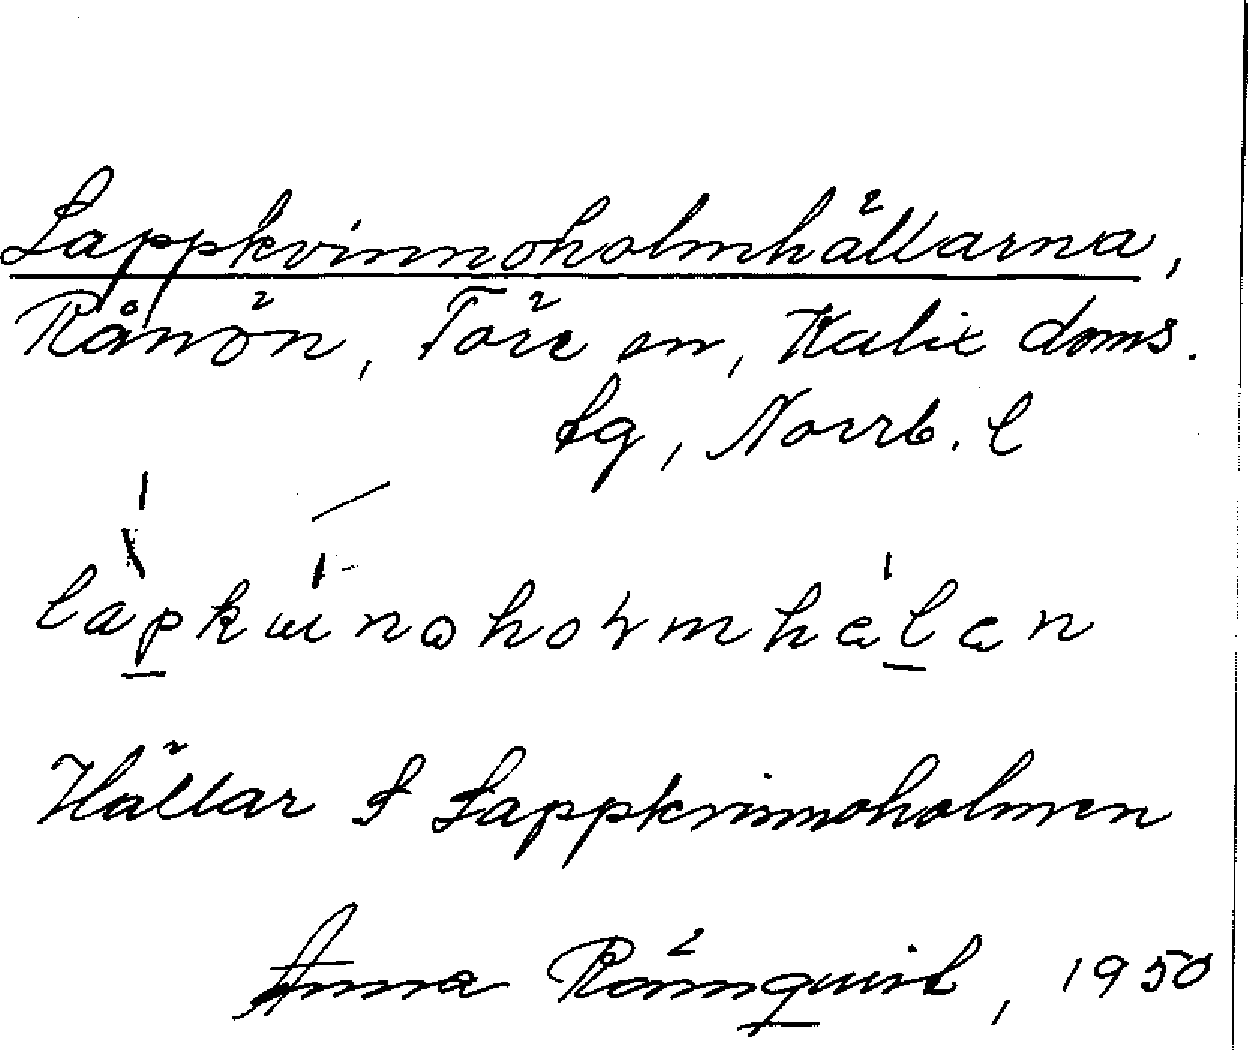 Lappkvinnoholmhällarna,
Rånön, Töre sn, Kalix doms.
lg, Norrb. l
Hällar S Lappkvinnoholmen
Anna Rönnquist, 1950